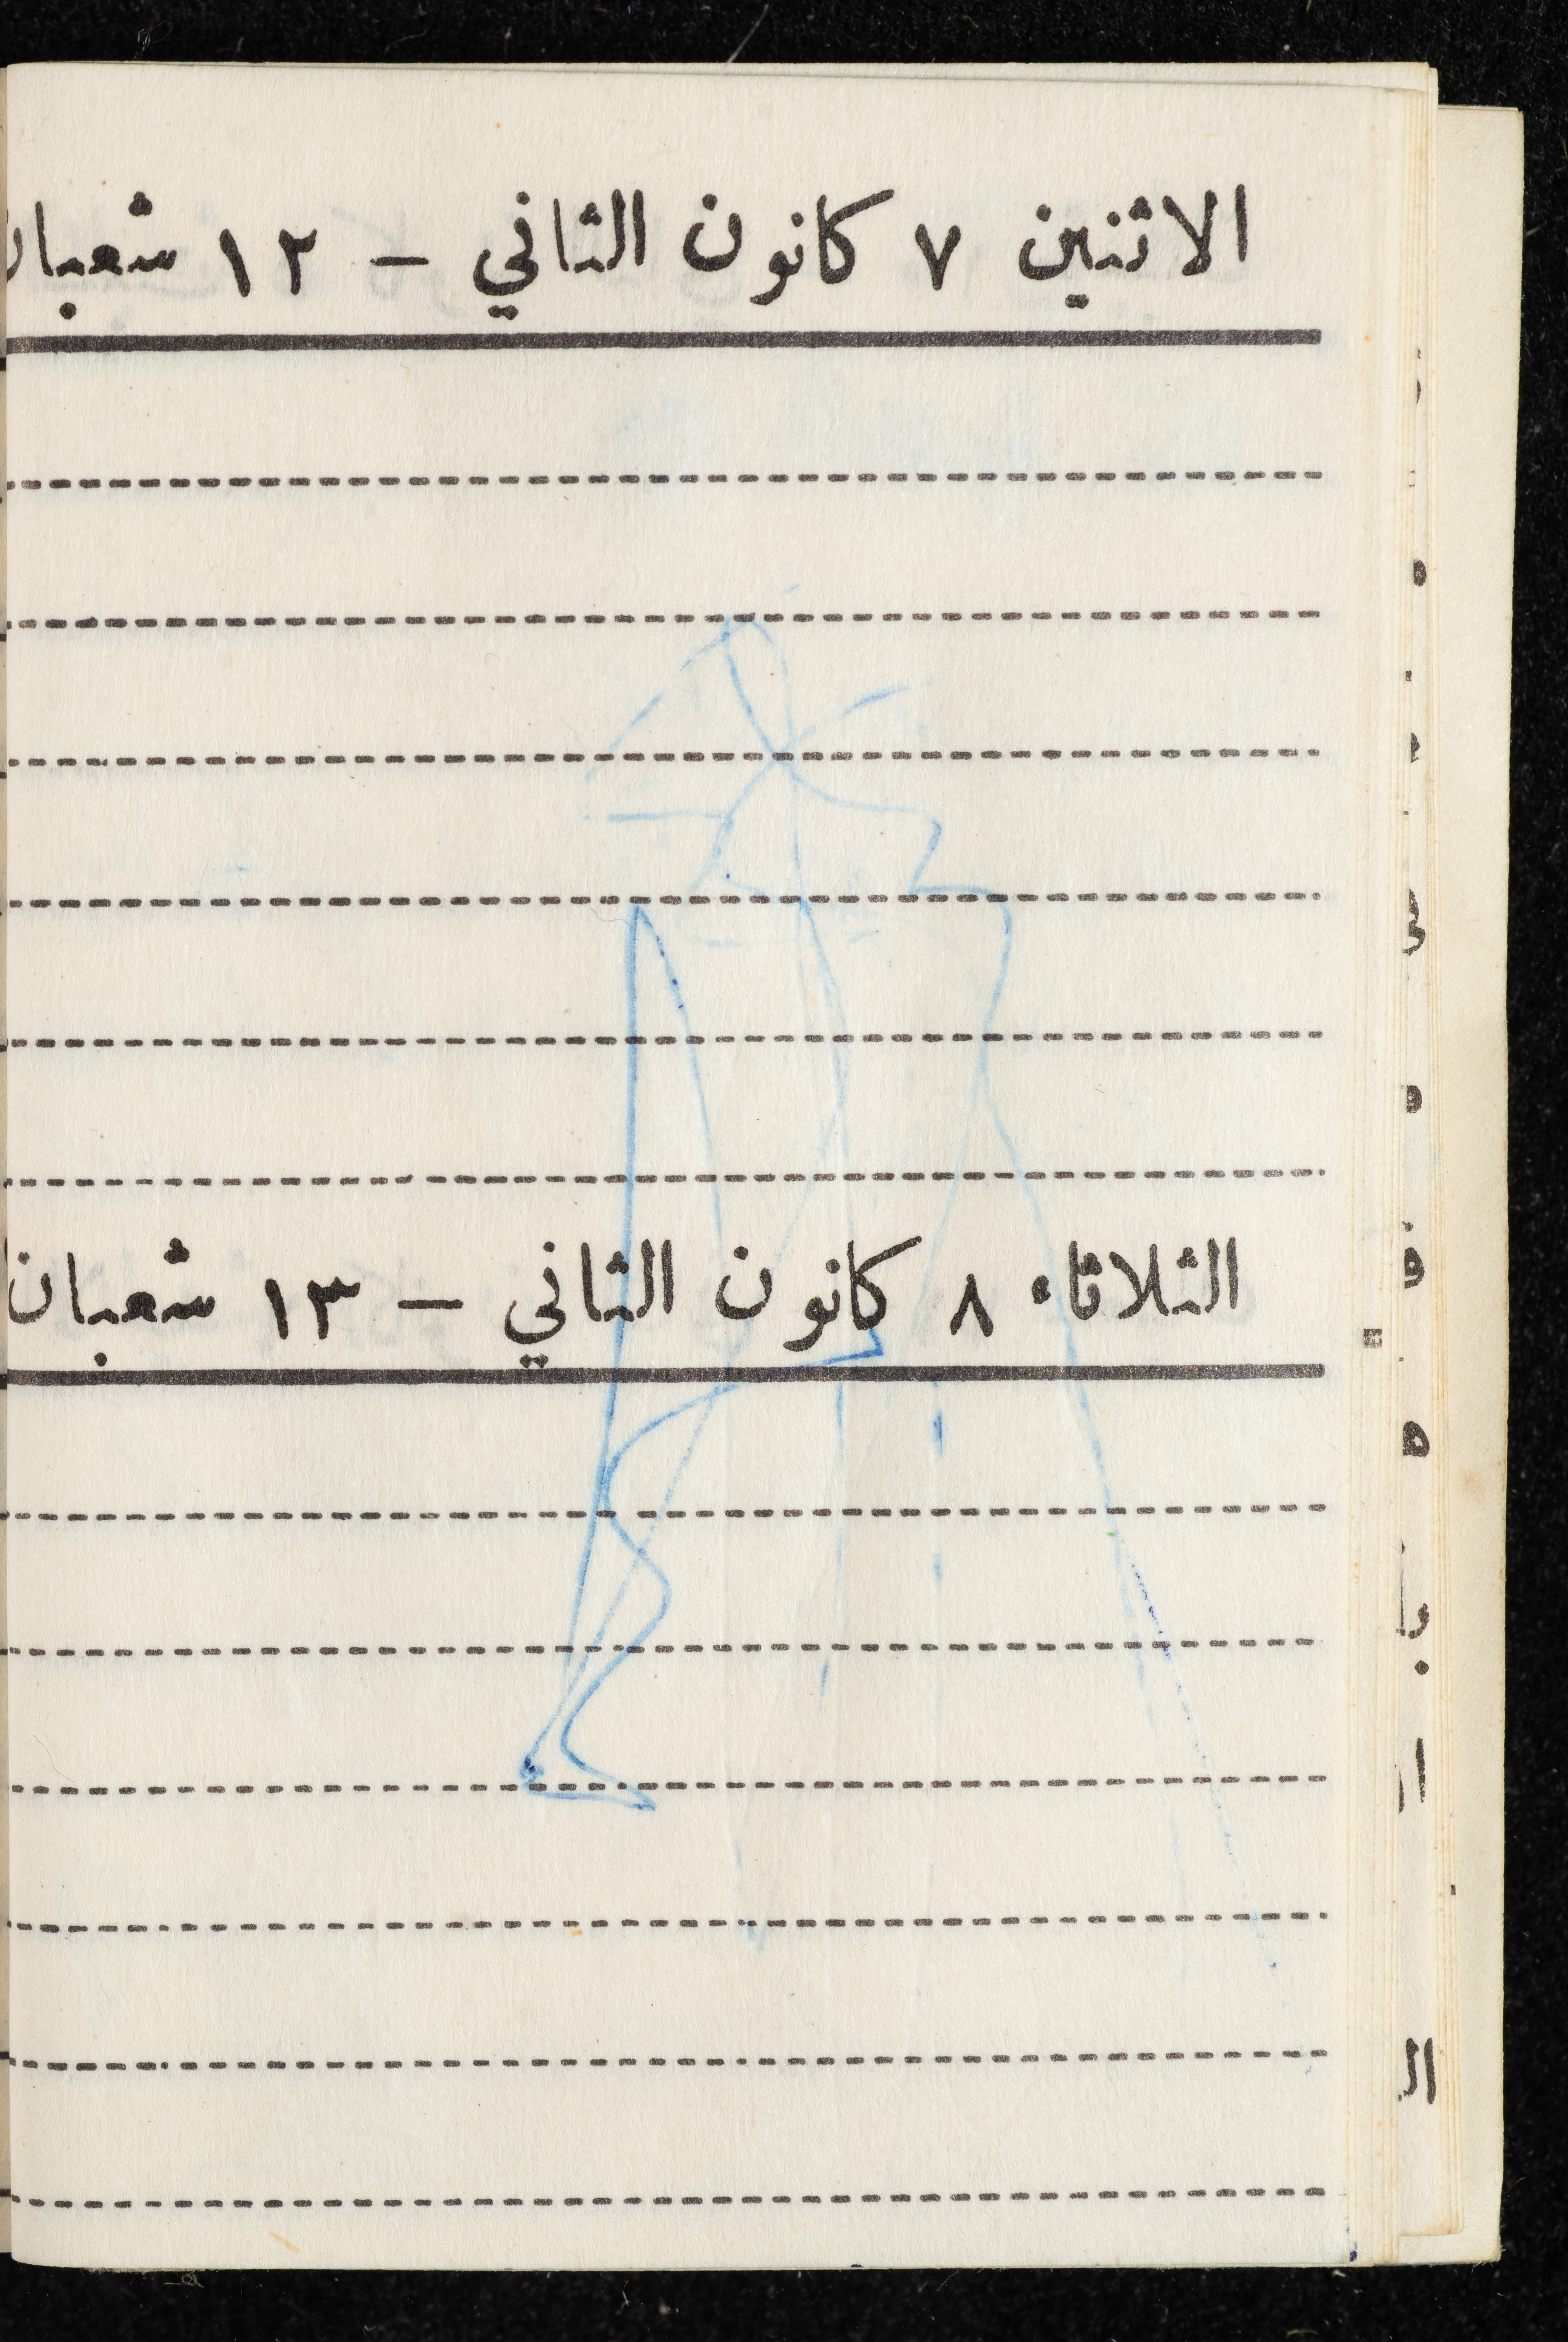 الاثنين ٧ كانون الثاني – ١٢ شعبان
الثلاثاء ٨ كانون الثاني – ١٣ شعبان